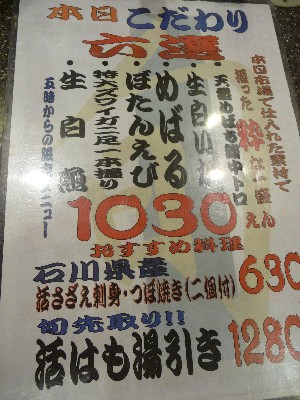 本日こだわり
六選
本日市場で仕入れた素材で
握った粋な一皿
天然めばち鮪中トロ
生白い
めばる
ぼたんえび
特大ズワイガニ足一本握り
生白魚
五時からの限定メニュー
1030
おすすめ料理
石川県産
活さざえ刺身・つぼ焼き(二個付)
630
旬先取り!!
活はも湯引き
1280